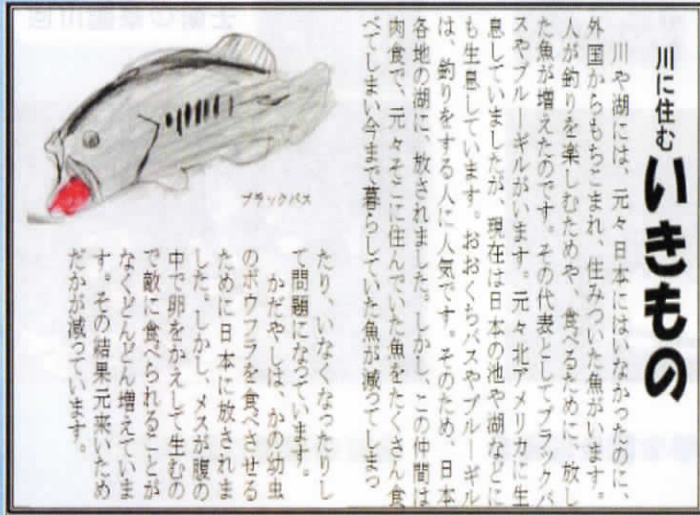 川に住む いきもの
川や湖には、元々日本にはいなかったのに、
外国からもちこまれ、住みついた魚がいます。
人が釣りを楽しむためや、食べるために、放し
た魚が増えたのです。その代表としてブラックバ
スやブルーギルがいます。元々北アメリカに生
息していましたが、現在は日本の池や湖などに
も生息しています。おおくちバスやブルーギル
は、釣りをする人に人気です。そのため、日本
各地の湖に、放されました。しかし、この仲間は
肉食で、元々そこに住んでいた魚をたくさん食
べてしまい今まで暮らしていた魚が減ってしまっ
たり、いなくなったりし
て問題になっています。
かだやしは、かの幼虫
のボウフラを食べさせる
ために日本に放されま
した。しかし、メスが腹の
中で卵をかえして生むの
で敵に食べられることが
なくどんどん増えていま
す。その結果元来いため
だかが減っています。
ブラックバス